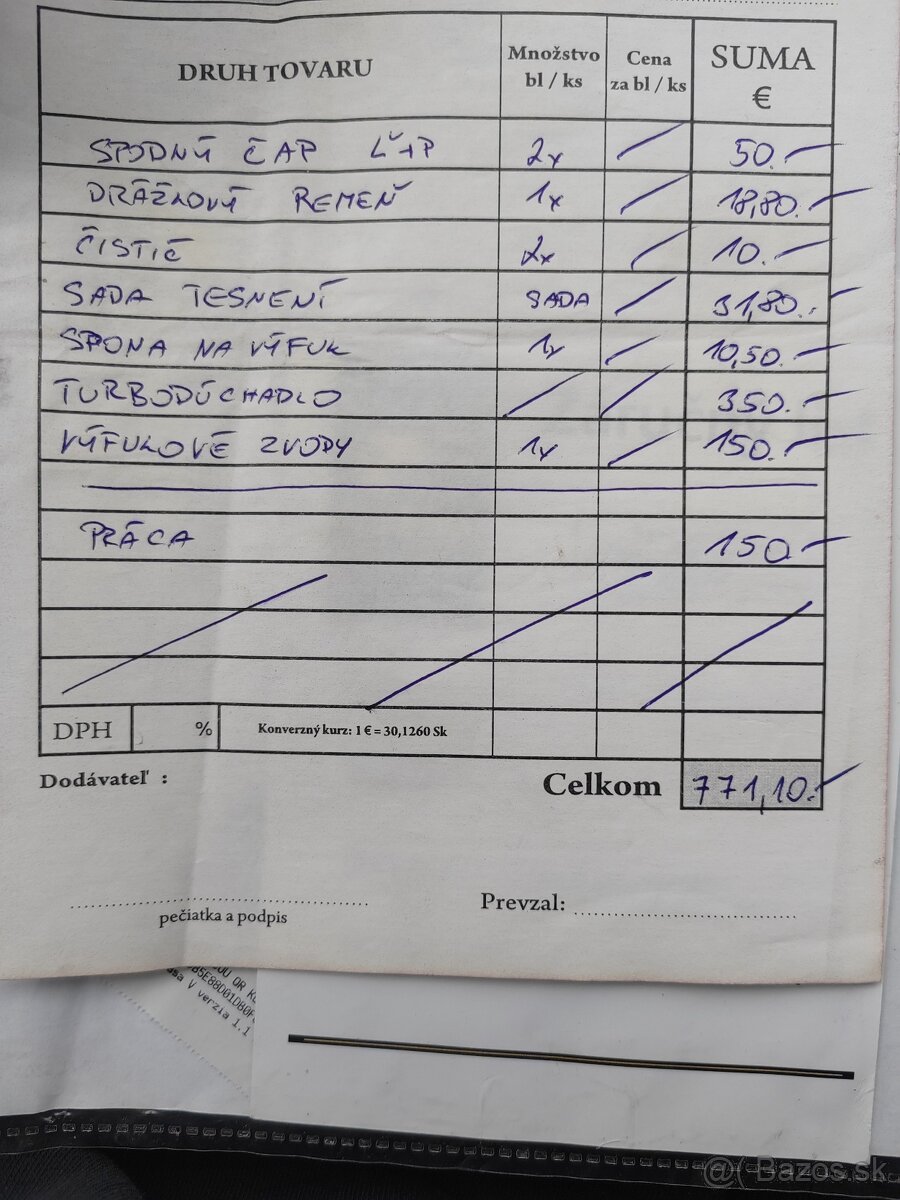 DRUH TOVARU Množstvo bl / ks Cena za bl / ks SUMA €
SPODNÝ ČAP Ľ+P 2x 50.-
DRÁŽKOVÝ REMEŇ 1x 18,80.-
ČISTIČ 2x 10.-
SADA TESNENÍ SADA 31,80.-
SPONA NA VÝFUK 1x 10,50.-
TURBODÚCHADLO 350.-
VÝFUKOVÉ ZVODY 1x 150.-
PRÁCA 150.-
DPH % Konverzný kurz: 1 € = 30,1260 Sk
Dodávateľ : Celkom 771,10.-
pečiatka a podpis Prevzal:
V verzia 1.1
@( Bazos.sk